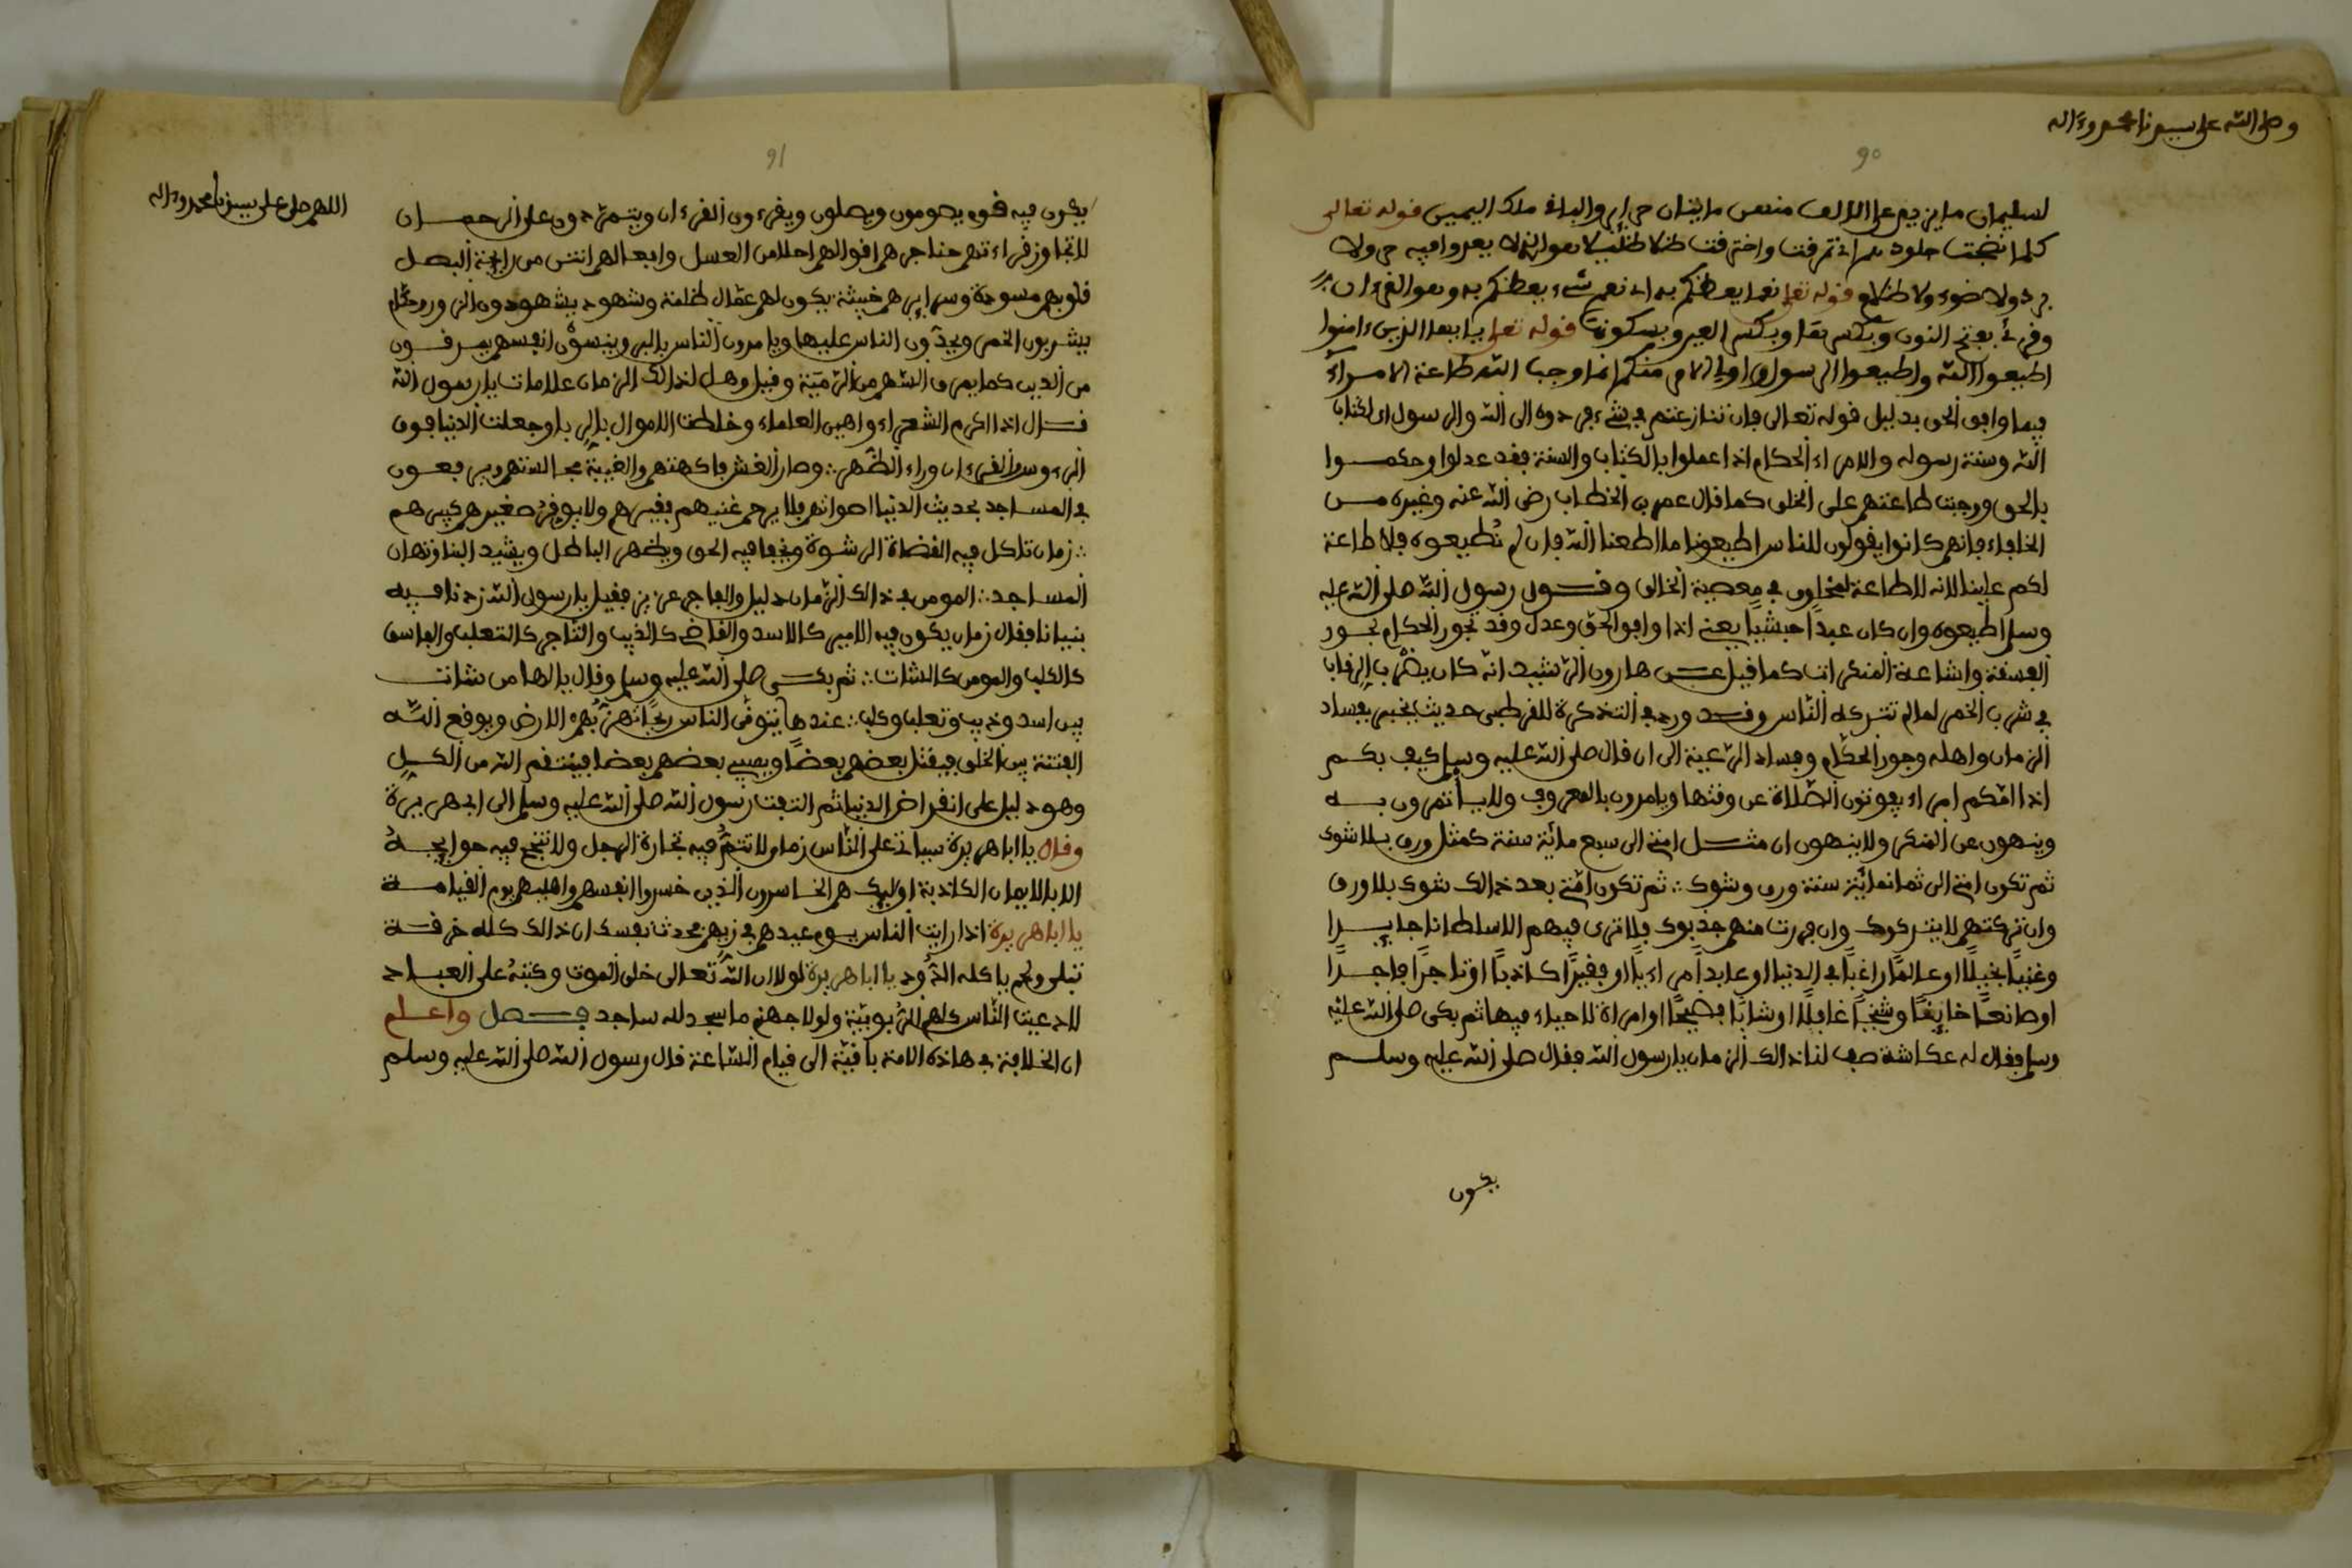 وصلى الله على سيدنا محمد وءاله
90
لسليمان ما يزيد على الالف منهن مايتان حراير والباقي ملك اليمين قوله تعالى
كلما نضجت جلودهم اي تمزقت واحترقت ظلا ظليلا هو الذي لا
برد ولا ضوء ولا ظلام قوله تعلى نعما يعظكم به اي نعم شيء يعظكم به وهو القرءان
وقرئ بفتح النون وبكسرها وبكسر العين وبسكونها قوله تعلى يا ايها الذين ءامنوا
اطيعوا الله واطيعوا الرسول واولي الامر منكم انما وجب الله طاعة الامراء
فيما وافق الحق بدليل قوله تعالى فان تنازعتم في شيء فردوه الى الله والرسول اي لكتاب
الله وسنة رسوله والامراء الحكام اذا عملوا بالكتاب والسنة فقد عدلوا وحكموا
بالحق ووجبت طاعتهم على الخلق كما قال عمر بن الخطاب رضي الله عنه وغيره من
الخلفاء فانهم كانوا يقولون للناس اطيعونا ما اطعنا الله فان لم نطيعوه فلا طاعة
لكم علينا لانه لا طاعة لمخلوق في معصية الخالق وقول رسول الله صلى الله عليه
وسلم اطيعوه وان كان عبدا حبشيا يعني اذا وافق الحق وعدل وقد تجور الحكام بجور
الفسقة واشاعة المنكرات كما قيل عن هارون الرشيد انه كان يضرب الرقاب
في شرب الخمر لما لم تتركه الناس وقد ورد في التذكرة للقرطبي حديث يخبر بفساد
الزمان واهله وجور الحكام وفساد الرعية الى ان قال صلى الله عليه وسلم كيف بكم
اذا اتتكم امراء يفوتون الصلاة عن وقتها ويامرون بالمعروف ولا ياتمرون به
وينهون عن المنكر ولا ينهون ان مثل امتي الى سبع ماية سنة كمثل ورق بلا شوك
ثم تكون امتي الى ثمانماية سنة ورق وشوك ∴ ثم تكون امتي بعد ذالك شوك بلا ورق
وان تركتهم لا يتركوك وان فررت منهم جذبوك فلا ترى فيهم الا سلطانا جايرا
وغنيا بخيلا او عالما راغبا في الدنيا او عابدا مراءيا او فقيرا كاذبا او تاجرا فاجرا
او صانعا خاينا وشيخا غافلا او شابا فضيحا او امراة لا حياء فيها ثم بكى صلى الله عليه
وسلم فقال له عكاشة صف لنا ذالك الزمان يا رسول الله فقال صلى الله عليه وسلم
يكون
91
اللهم صل على سيدنا محمد وءاله
يكون فيه قوم يصومون ويصلون ويقرءون القرءان ويتمردون على الرحمان
لا تجاوز قراءتهم حناجرهم اقوالهم احلا من العسل وافعالهم انتن من رايحة البصل
قلوبهم مسودة وسرايرهم خبيثة يكون لهم عمال ظلمة وشهود يشهدون الزور وحكام
يشربون الخمر ويحدون الناس عليها ويامرون الناس بالبر وينسون انفسهم يمرقون
من الدين كما يمرق السهم من الرمية وقيل وهل لذالك الزمان علامات يا رسول الله
قال اذا اكرم الشعراء واهين العلماء وخلطت الاموال بالربا وجعلت الدنيا فوق
الرءوس والقرءان وراء الظهر ∴ وصار الغش فاكهتهم والغيبة مجالستهم يرفعون
في المساجد بحديث الدنيا اصواتهم فلا يرحم غنيهم فقيرهم ولا يوقر صغيرهم كبيرهم
∴ زمان تاكل فيه القضاة الرشوة ويخفا فيه الحق ويظهر الباطل ويشيد البنا وتهان
المساجد ∴ المومن في ذالك الزمان ذليل والفاجر عزيز فقيل يا رسول الله زدنا فيه
بيانا فقال زمان يكون فيه الامير كالاسد والقاضي كالذيب والتاجر كالثعلب والفاسق
كالكلب والمومن كالشات ∴ ثم بكى صلى الله عليه وسلم وقال يا لها من شات
بين اسد وذيب وثعلب وكلب ∴ عندها الناس الارض ويوقع الله
الفتنة بين الخلق فيقتل بعضهم بعضا ويسبي بعضهم بعضا فينتقم الله من الكل
وهو دليل على انقراض الدنيا ثم التفت رسول الله صلى الله عليه وسلم الى ابي هريرة
وقال يا ابا هريرة سياتي على الناس زمان لا تتم فيه تجارة الرجل ولا تنجح فيه حوايجه
الا بالايمان الكاذبة اوليك هم الخاسرون الذين خسروا انفسهم واهليهم يوم القيامة
يا ابا هريرة اذا رايت الناس يوم عيدهم في زيهم فحدث نفسك ان ذالك كله خرقة
تبلى ولحم ياكله الدود يا ابا هريرة لولا ان الله تعالى خلق الموت وكتبه على العباد
لادعيت الناس كلهم الربوبية ولولا جهنم ما سجد لله ساجد فصل واعلم
ان الخلافة في هاذه الامة باقية الى قيام الساعة قال رسول الله صلى الله عليه وسلم